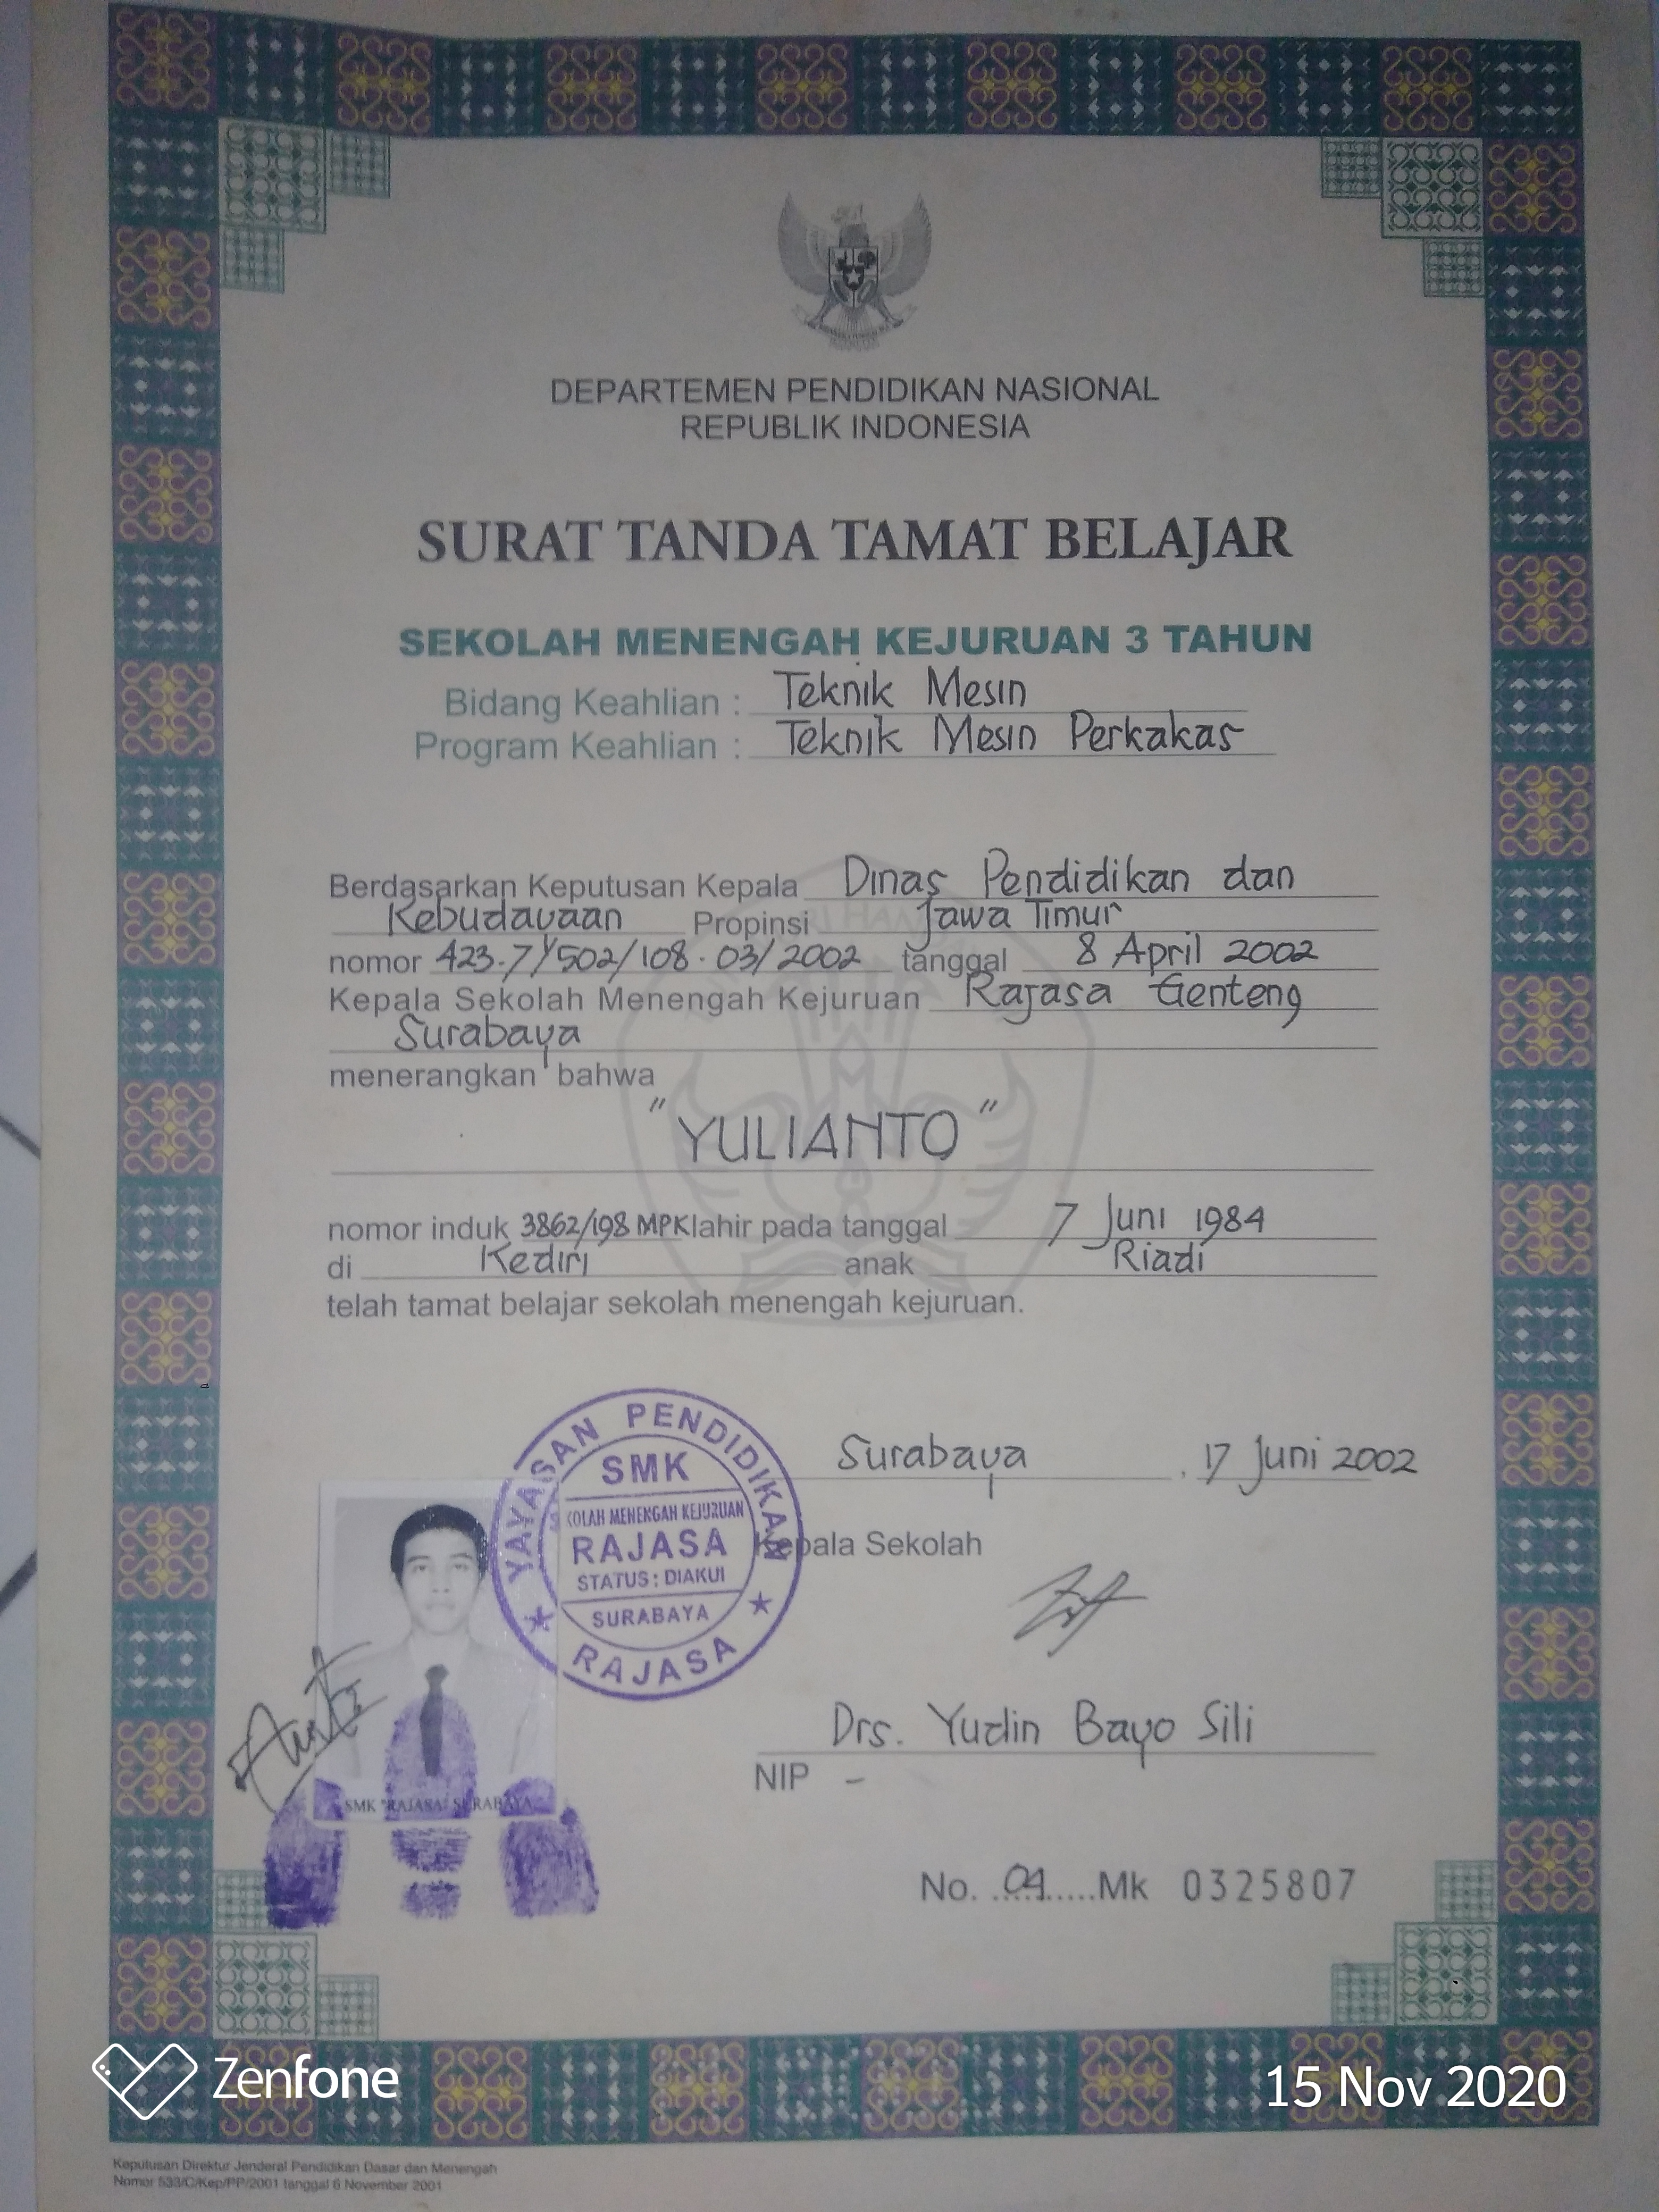 DEPARTEMEN PENDIDIKAN NASIONAL
REPUBLIK INDONESIA
SURAT TANDA TAMAT BELAJAR
SEKOLAH MENENGAH KEJURUAN 3 TAHUN
Bidang Keahlian : Teknik Mesin
Program Keahlian : Teknik Mesin Perkakas
Berdasarkan Keputusan Kepala Dinas Pendidikan dan
Kebudayaan Propinsi Jawa Timur
nomor 423.7/502/108.03/2002 tanggal 8 April 2002
Kepala Sekolah Menengah Kejuruan Rajasa Genteng
Surabaya
menerangkan bahwa
"YULIANTO"
nomor induk 3862/198 MPK lahir pada tanggal 7 Juni 1984
di Kediri anak Riadi
telah tamat belajar sekolah menengah kejuruan.
Surabaya, 17 Juni 2002
Kepala Sekolah
YAYASAN PENDIDIKAN
SMK
KOLAH MENENGAH KEJURUAN
RAJASA
STATUS : DIAKUI
SURABAYA
RAJASA
Drs. Yudin Bayo Sili
NIP -
SMK "RAJASA" SURABAYA
No. 04 Mk 0325807
Zenfone
15 Nov 2020
Keputusan Direktur Jenderal Pendidikan Dasar dan Menengah
Nomor 533/C/Kep/PP/2001 tanggal 6 November 2001